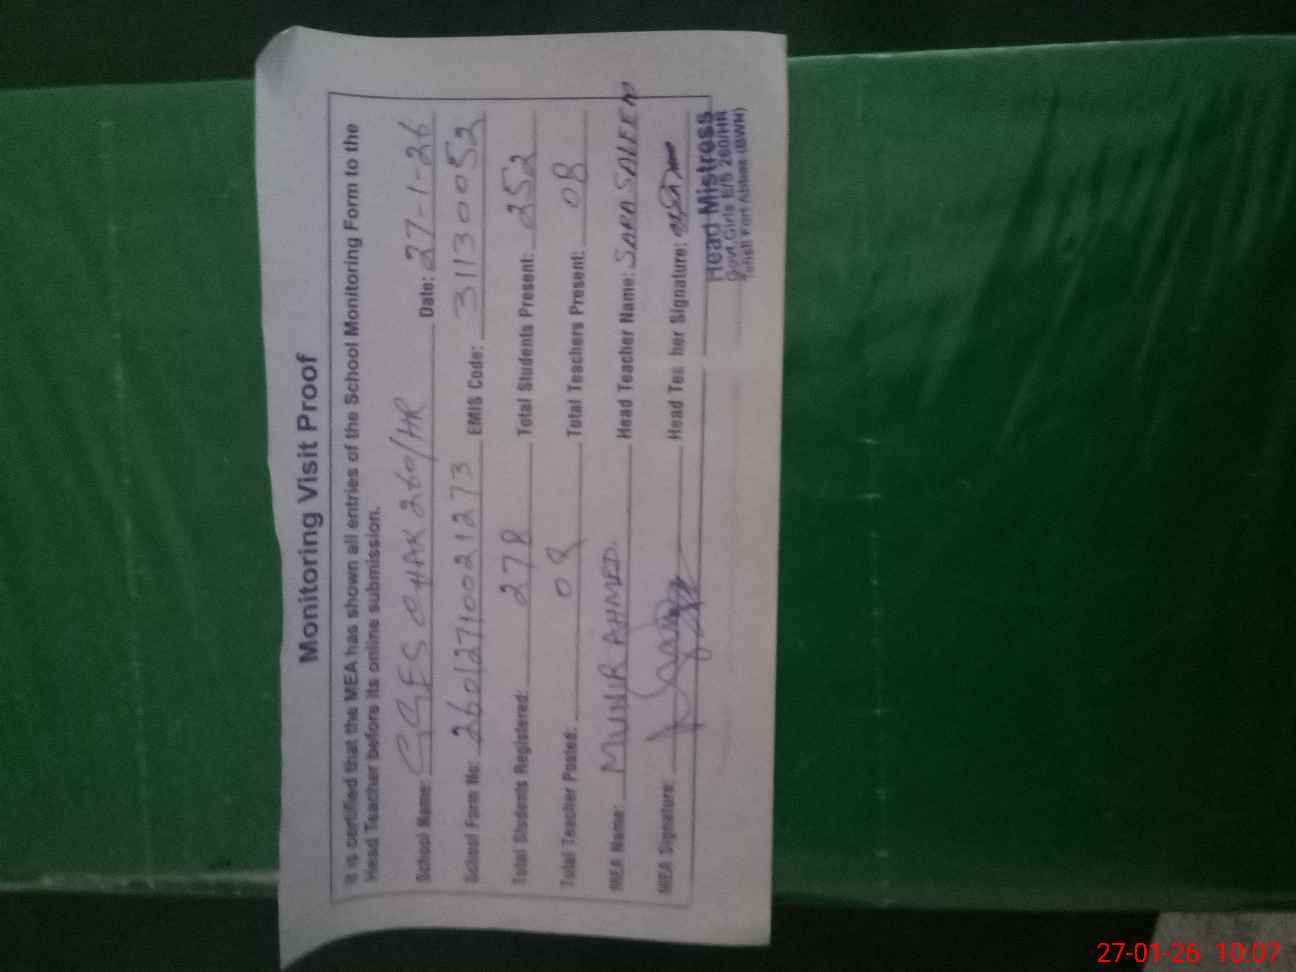 Monitoring Visit Proof
It is certified that the MEA has shown all entries of the School Monitoring Form to the
Head Teacher before its online submission.
School Name: GGES CHAK 260/HR Date: 27-1-26
School Form No: 26012710021273 EMIS Code: 31130052
Total Students Registered: 278 Total Students Present: 252
Total Teacher Posted: 08 Total Teachers Present: 08
MEA Name: MUNIR AHMED. Head Teacher Name: SARA SALEEM
MEA Signature: Head Teacher Signature:
Head Mistress
Govt. Girls E/S 260/HR
Fort Abbas (BWN)
27-01-26 10:07